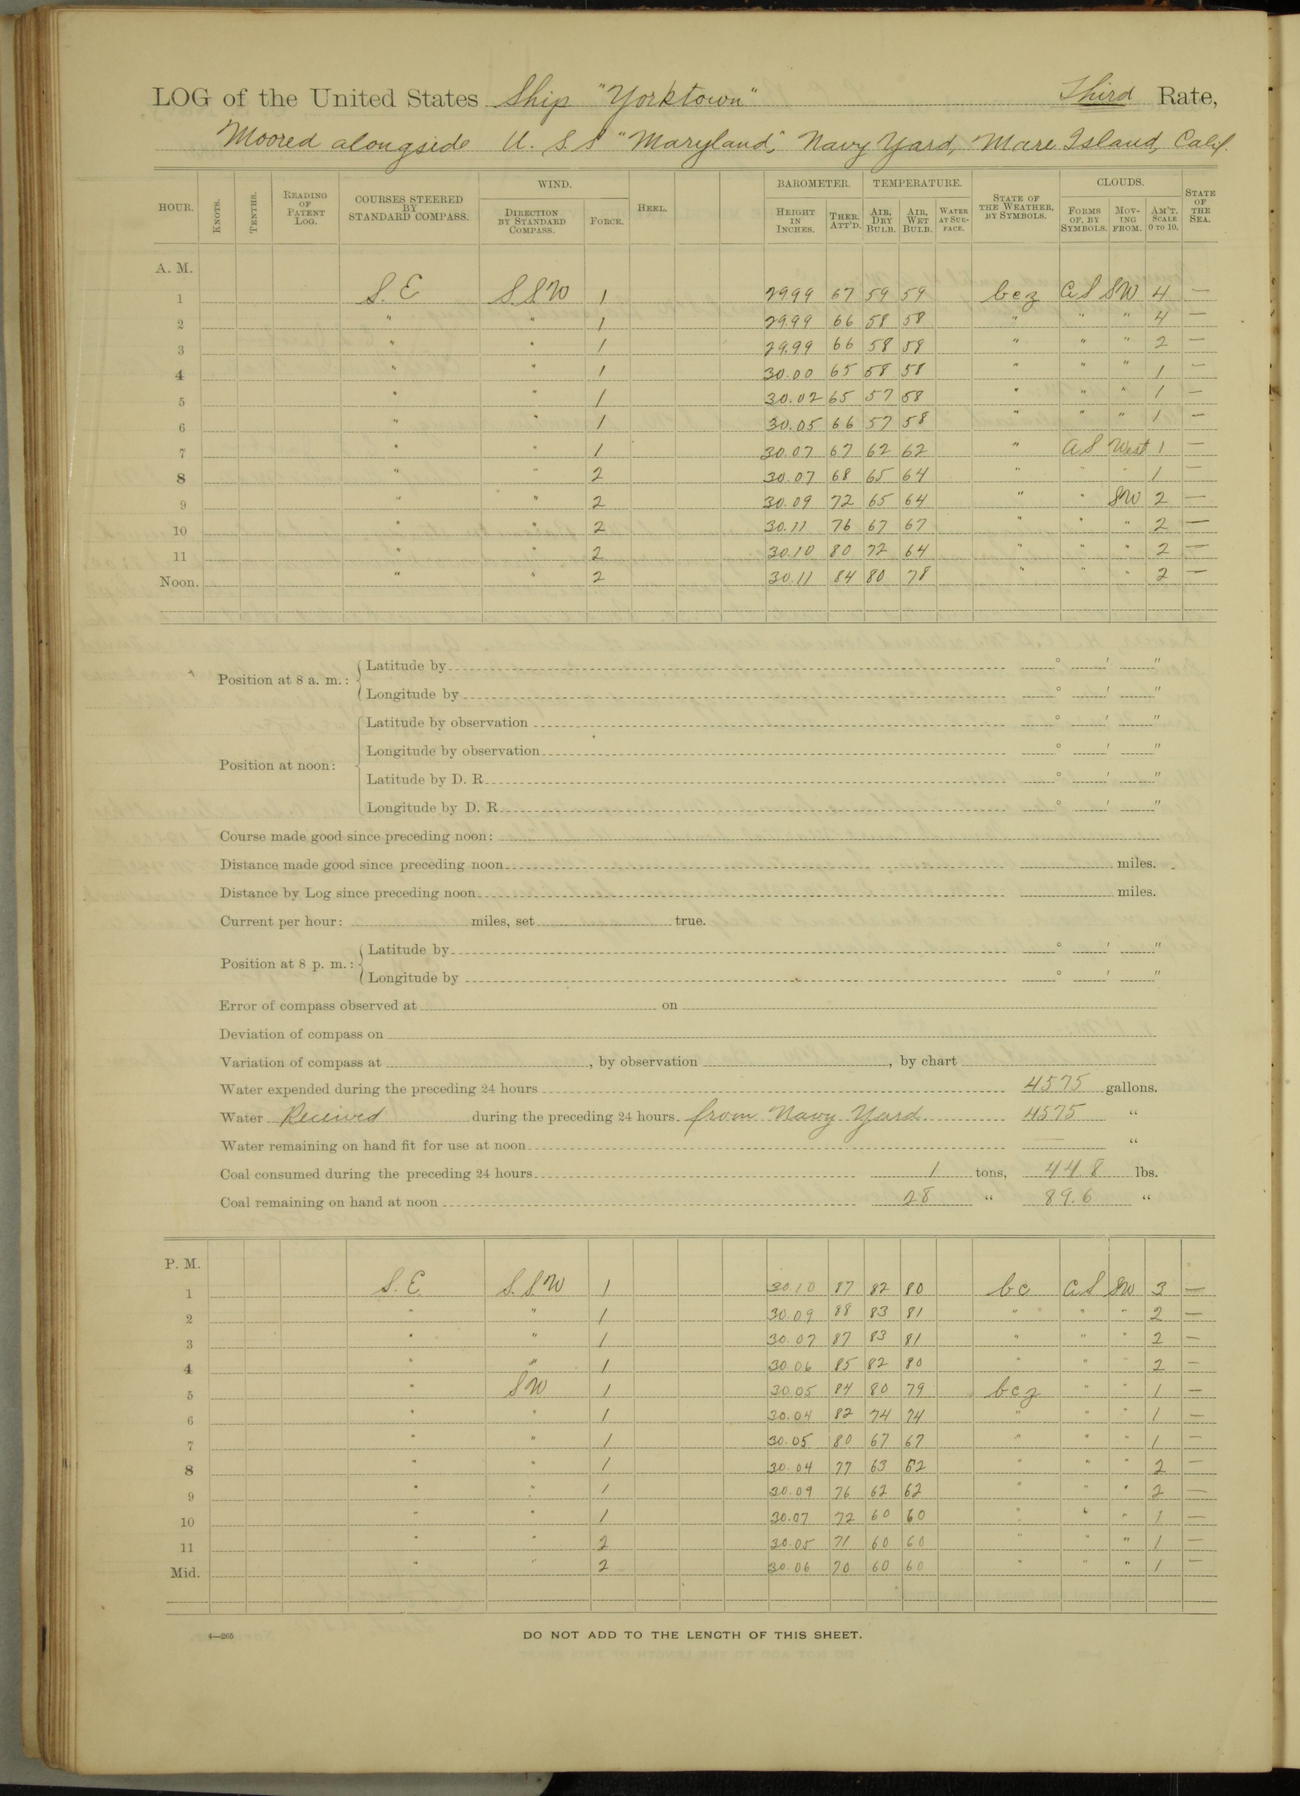 LOG of the United States Ship "Yorktown" Third Rate,
Moored alongside U. S S "Maryland," Navy Yard, Mare Island, Calif.
HOUR. KNOTS. TENTHS. READING OF PATENT LOG. COURSES STEERED BY STANDARD COMPASS. WIND. DIRECTION BY STANDARD COMPASS. FORCE. HEEL. BAROMETER. HEIGHT IN INCHES. THER. ATT'D. TEMPERATURE. AIR, DRY BULB. AIR, WET BULB. WATER AT SURFACE. STATE OF THE WEATHER, BY SYMBOLS. CLOUDS. FORMS OF, BY SYMBOLS. MOVING FROM. AM'T. SCALE 0 TO 10. STATE OF THE SEA.
A. M.
1 S. E S. S W 1 29.99 67 59 59 bcz C S SW 4 —
2 " " 1 29.99 66 58 58 " " " 4 —
3 " " 1 29.99 66 58 58 " " " 2 —
4 " " 1 30.00 65 58 58 " " " 1 —
5 " " 1 30.02 65 57 58 " " " 1 —
6 " " 1 30.05 66 57 58 " " " 1 —
7 " " 1 30.07 67 62 62 " A S West 1 —
8 " " 2 30.07 68 65 64 " " " 1 —
9 " " 2 30.09 72 65 64 " " SW 2 —
10 " " 2 30.11 76 67 67 " " " 2 —
11 " " 2 30.10 80 72 64 " " " 2 —
Noon. " " 2 30.11 84 80 78 " " " 2 —
Position at 8 a. m.: Latitude by ° ' "
Longitude by ° ' "
Position at noon: Latitude by observation ° ' "
Longitude by observation ° ' "
Latitude by D. R. ° ' "
Longitude by D. R. ° ' "
Course made good since preceding noon:
Distance made good since preceding noon miles.
Distance by Log since preceding noon miles.
Current per hour: miles, set true.
Position at 8 p. m.: Latitude by ° ' "
Longitude by ° ' "
Error of compass observed at on
Deviation of compass on
Variation of compass at , by observation , by chart
Water expended during the preceding 24 hours 4575 gallons.
Water Received during the preceding 24 hours. from Navy Yard 4575 "
Water remaining on hand fit for use at noon "
Coal consumed during the preceding 24 hours 1 tons, 448 lbs.
Coal remaining on hand at noon 28 " 896 "
P. M.
1 S. E S. S W 1 30.10 87 82 80 bc C S SW 3 —
2 " " 1 30.09 88 83 81 " " " 2 —
3 " " 1 30.07 87 83 81 " " " 2 —
4 " " 1 30.06 85 82 80 " " " 2 —
5 " SW 1 30.05 84 80 79 bcz " " 1 —
6 " " 1 30.04 82 74 74 " " " 1 —
7 " " 1 30.05 80 67 67 " " " 1 —
8 " " 1 30.04 77 63 62 " " " 2 —
9 " " 1 30.09 76 62 62 " " " 2 —
10 " " 1 30.07 72 60 60 " " " 1 —
11 " " 2 30.05 71 60 60 " " " 1 —
Mid. " " 2 30.06 70 60 60 " " " 1 —
4—265
DO NOT ADD TO THE LENGTH OF THIS SHEET.